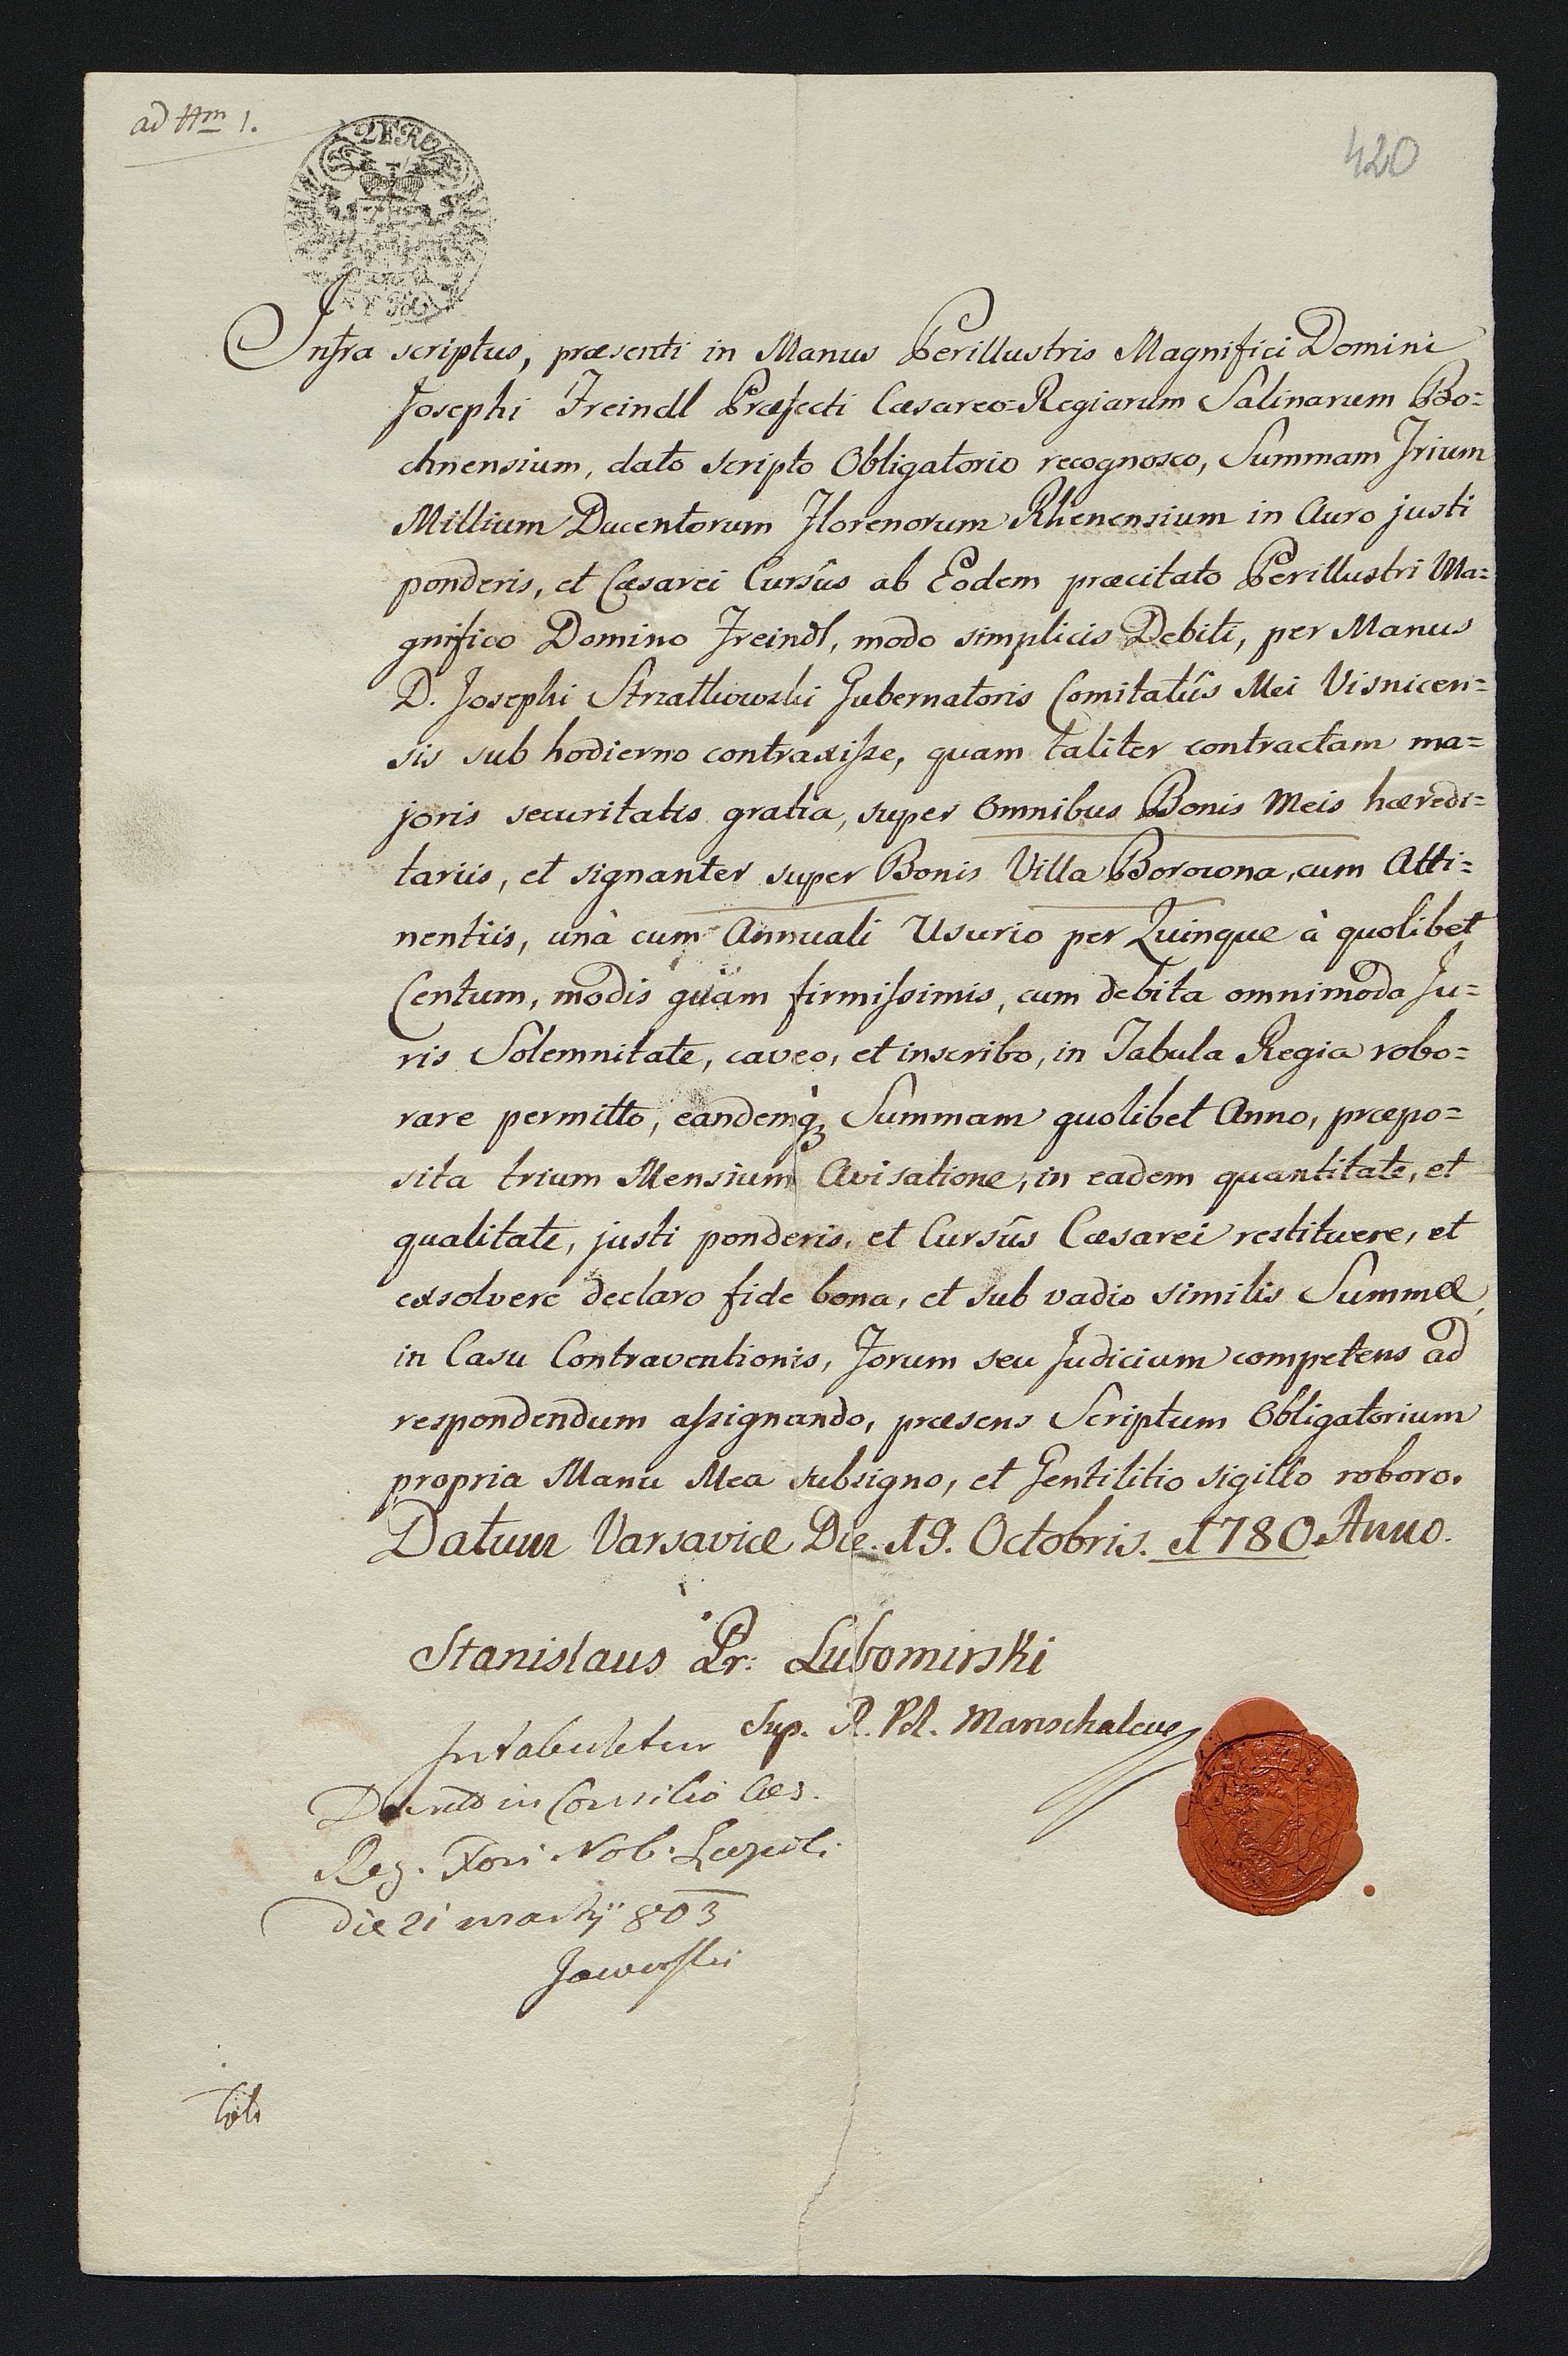 ad Nm 1.
420
Infra scriptus, præsenti in Manus Perillustris Magnifici Domini
Josephi Freindl Præfecti Cæsareo=Regiarum Salinarum Bo=
chnensium, dato scripto Obligatorio recognosco, Summam Trium
Millium Ducentorum Florenorum Rhenensium in Auro justi
ponderis, et Cæsarei Cursûs ab Eodem præcitato Perillustri Ma=
gnifico Domino Freindl, modo simplicis Debiti, per Manus
D. Josephi Strzatkowski Gubernatoris Comitatûs Mei Visnicen=
sis sub hodierno contraxisse, quam taliter contractam ma=
joris securitatis gratia, super Omnibus Bonis Meis hæredi=
tariis, et signanter super Bonis Villa Borowna, cum Atti=
nentiis, unà cum Annuali Usurio per Quinque à quolibet
Centum, modis quàm firmissimis, cum debita omnimoda Ju=
ris Solemnitate, caveo, et inscribo, in Tabula Regia robo=
rare permitto, eandemq₃ Summam quolibet Anno, præpo=
sita trium Mensium Avisatione, in eadem quantitate, et
qualitate, justi ponderis, et Cursûs Cæsarei restituere, et
exsolvere declaro fide bona, et sub vadio similis Summæ,
in Casu Contraventionis, Forum seu Judicium competens ad
respondendum assignando, præsens Scriptum Obligatorium
propria Manu Mea subsigno, et Gentilitio sigillo roboro.
Datum Varsaviæ Die. 19. Octobris. 1780. Anno.
Stanislaus Pr: Lubomirski
Sup. R. Pol. Marschalcus
Intabuletur
in Consilio Cæs.
Reg. Fori Nob. Leopoli
die 21 martij 803
Jaworski